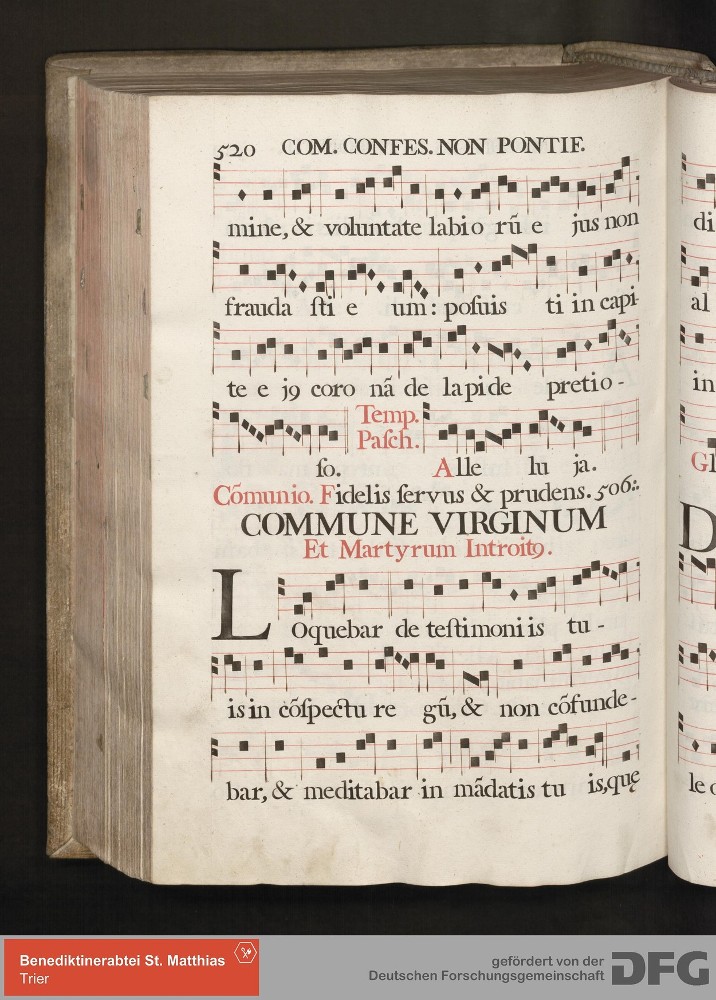 520 COM. CONFES. NON PONTIF.
mine, & voluntate labio rũ e jus non
frauda ſti e um: poſuis ti in capi-
te e jꝯ coro nã de lapide pretio-
Temp.
Paſch.
ſo. Alle lu ja.
Cõmunio. Fidelis ſervus & prudens. 506.
COMMUNE VIRGINUM
Et Martyrum Introitꝯ.
Loquebar de teſtimoni is tu-
is in cõſpectu re gũ, & non cõfunde-
bar, & meditabar in mãdatis tu is, quę
di
al
in
Gl
D
le
Benediktinerabtei St. Matthias
Trier
gefördert von der
Deutschen Forschungsgemeinschaft DFG